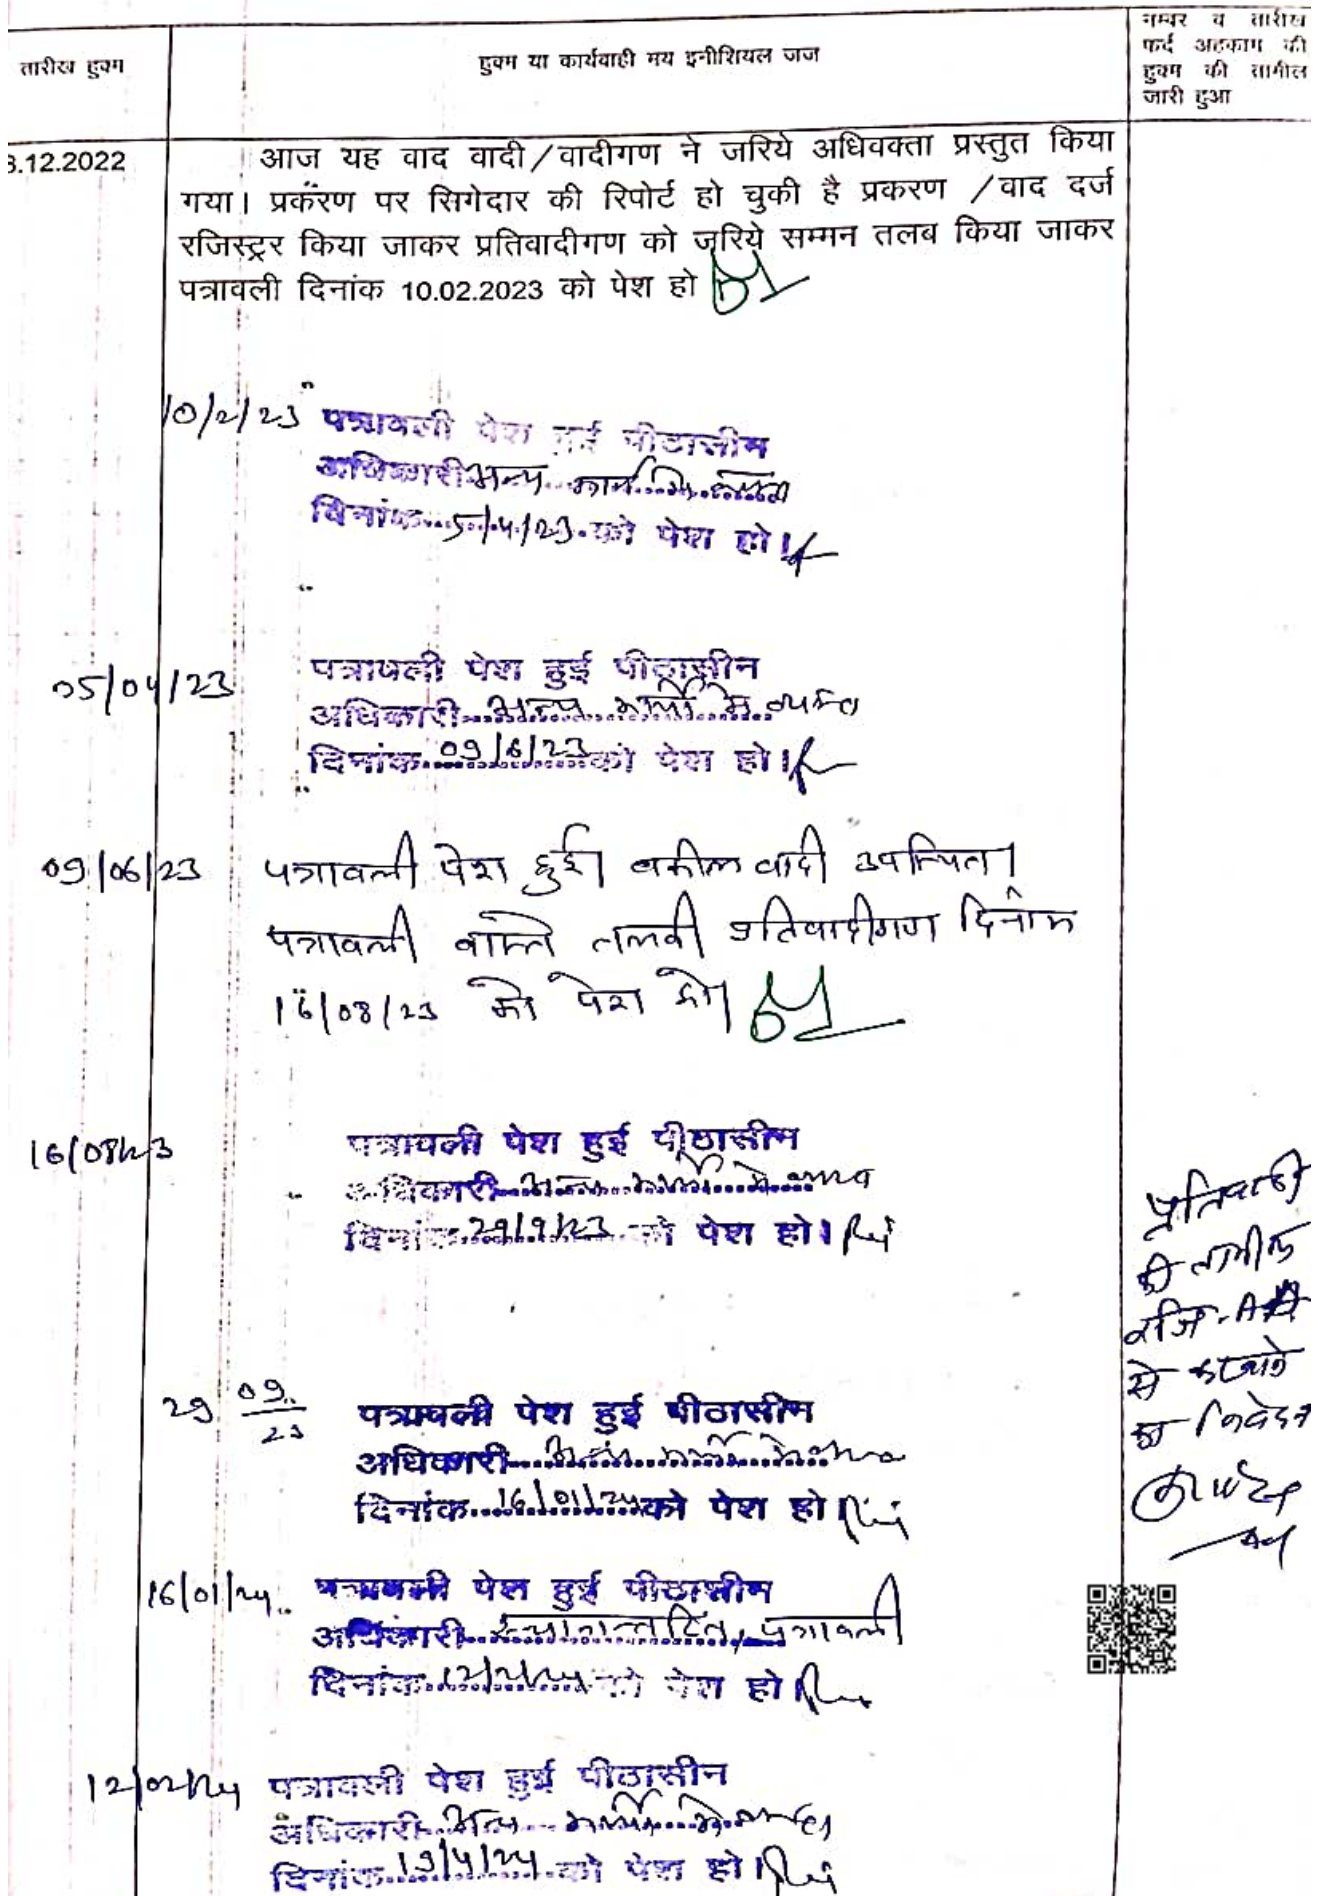 तारीख हुक्म
हुक्म या कार्यवाही मय इनीशियल जज
नम्बर व तारीख
फर्द अहकाम की
हुक्म की तामील
जारी हुआ
3.12.2022
आज यह वाद वादी/वादीगण ने जरिये अधिवक्ता प्रस्तुत किया
गया। प्रकरण पर सिगेदार की रिपोर्ट हो चुकी है प्रकरण /वाद दर्ज
रजिस्ट्रर किया जाकर प्रतिवादीगण को जरिये सम्मन तलब किया जाकर
पत्रावली दिनांक 10.02.2023 को पेश हो
10/2/23 पत्रावली पेश हुई पीठासीन
अधिकारी अन्य कार्य में व्यस्त
दिनांक 5/4/23 को पेश हो।
05/04/23 पत्रावली पेश हुई पीठासीन
अधिकारी अन्य कार्यो मे व्यस्त
दिनांक 09/6/23 को पेश हो।
09/06/23 पत्रावली पेश हुई। वकील वादी उपस्थित।
पत्रावली वास्ते तलबी प्रतिवादीगण दिनांक
16/08/23 को पेश हो।
16/08/23 पत्रावली पेश हुई पीठासीन
अधिकारी अन्य कार्यो मे व्यस्त
दिनांक 29/9/23 को पेश हो।
प्रतिवादी
की तामील
रजि. AD
से करवाने
का निवेदन
29 09/23 पत्रावली पेश हुई पीठासीन
अधिकारी अन्य कार्यो मे व्यस्त
दिनांक 16/01/24 को पेश हो।
16/01/24 पत्रावली पेश हुई पीठासीन
अधिकारी स्थानान्तरित, पत्रावली
दिनांक 12/2/24 को पेश हो।
12/02/24 पत्रावली पेश हुई पीठासीन
अधिकारी अन्य कार्यो मे व्यस्त
दिनांक 19/4/24 को पेश हो।